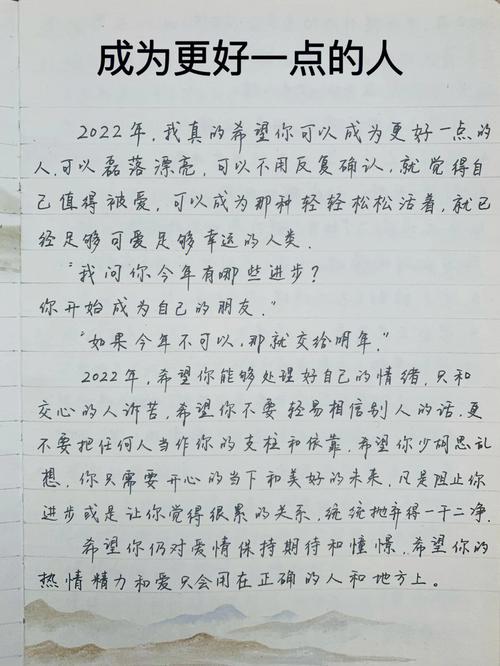 成为更好一点的人
2022年,我真的希望你可以成为更好一点的
人,可以磊落漂亮,可以不用反复确认,就觉得自
己值得被爱,可以成为那种轻轻松松活着,就已
经足够可爱足够幸运的人类.
"我问你今年有哪些进步?
你开始成为自己的朋友."
"如果今年不可以,那就交给明年."
2022年,希望你能够处理好自己的情绪,只和
交心的人诉苦,希望你不要轻易相信别人的话,更
不要把任何人当作你的支柱和依靠,希望你少胡思乱
想,你只需要开心的当下和美好的未来,凡是阻止你
进步或是让你觉得很累的关系,统统抛弃得一干二净.
希望你仍对爱情保持期待和憧憬,希望你的
热情精力和爱只会用在正确的人和地方上。